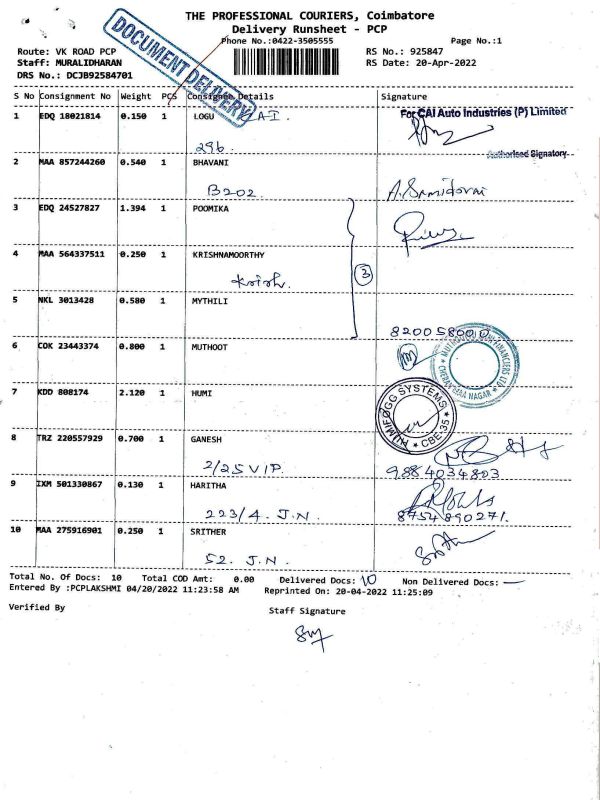 THE PROFESSIONAL COURIERS, Coimbatore
Delivery Runsheet - PCP
DOCUMENT DELIVERY
Phone No.:0422-3505555 Page No.:1
Route: VK ROAD PCP RS No.: 925847
Staff: MURALIDHARAN RS Date: 20-Apr-2022
DRS No.: DCJB92584701
S No Consignment No Weight PCS Consignee Details Signature
1 EDQ 18021814 0.150 1 LOGU For CAI Auto Industries (P) Limited
296
Authorised Signatory
2 MAA 857244260 0.540 1 BHAVANI
B202
3 EDQ 24527827 1.394 1 POOMIKA
4 MAA 564337511 0.250 1 KRISHNAMOORTHY
Krish
3
5 NKL 3013428 0.580 1 MYTHILI
820058000
6 COK 23443374 0.800 1 MUTHOOT
CHERAN MAA NAGAR
7 KDD 808174 2.120 1 HUMI
HUMIFOGG SYSTEMS
CBE-35
8 TRZ 220557929 0.700 1 GANESH
2/25 V.I.P. 9884034803
9 IXM 501330867 0.130 1 HARITHA
223/4. J.N. 8754890271.
10 MAA 275916901 0.250 1 SRITHER
52. J.N.
Total No. Of Docs: 10 Total COD Amt: 0.00 Delivered Docs: 10 Non Delivered Docs: —
Entered By :PCPLAKSHMI 04/20/2022 11:23:58 AM Reprinted On: 20-04-2022 11:25:09
Verified By Staff Signature